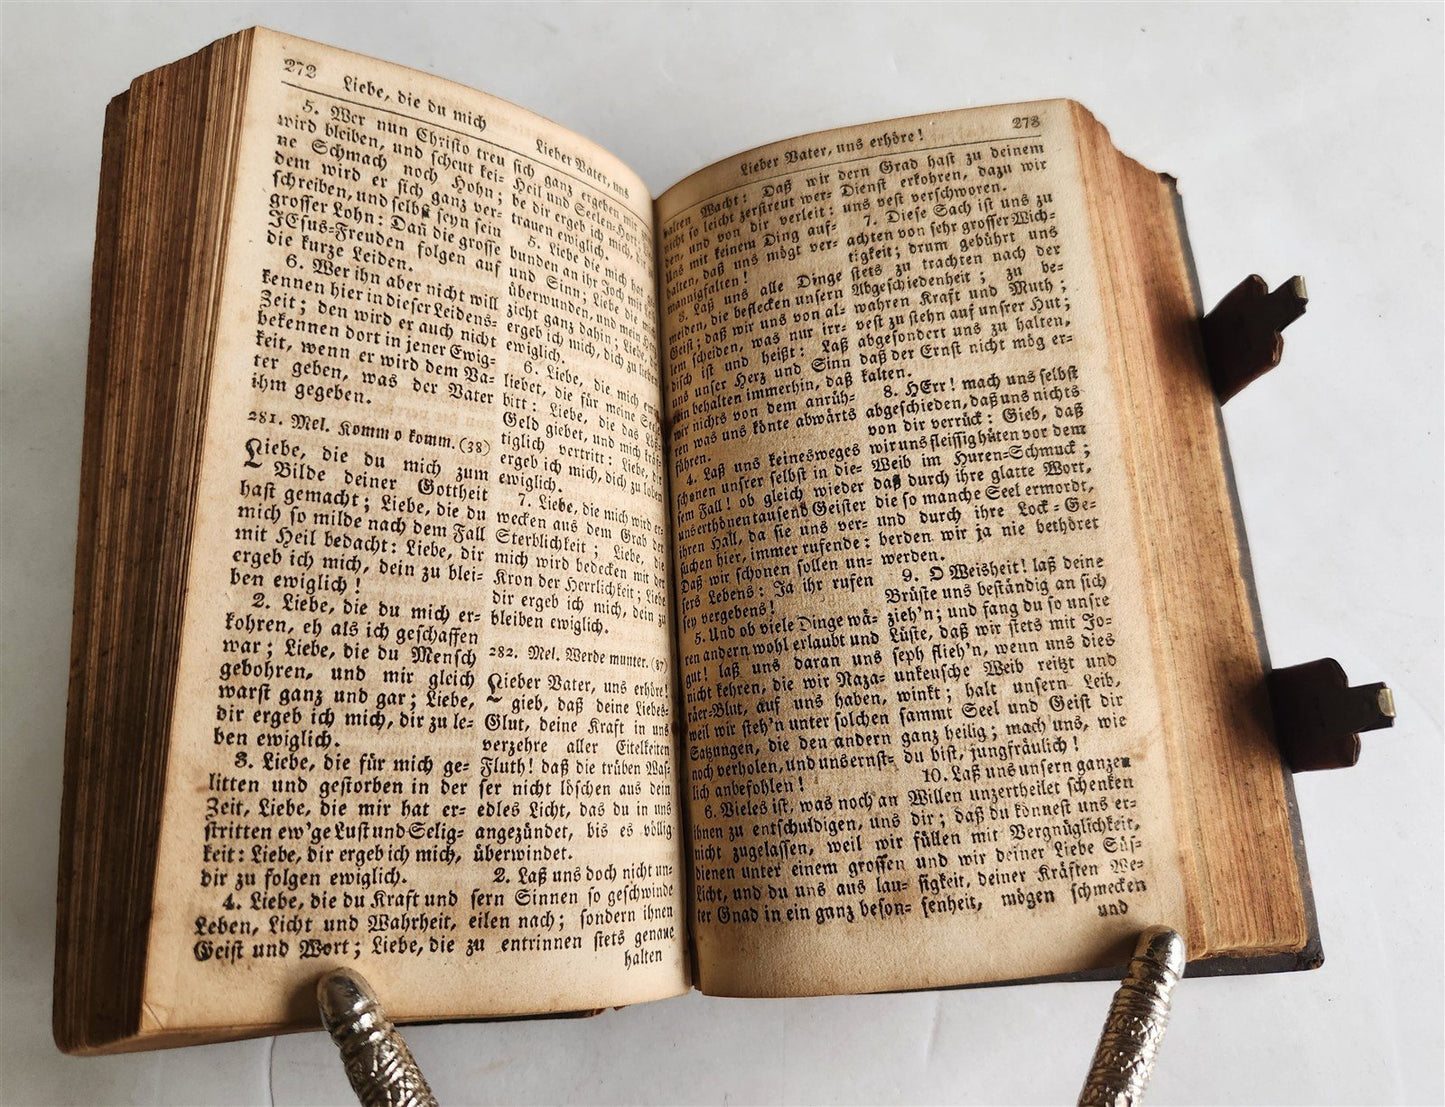 272 Liebe, die du mich
Lieber Vater, uns
5. Wer nun Christo treu
wird bleiben, und scheut kei-
ne Schmach noch Hohn;
dem wird er sich ganz ver-
schreiben, und selbst seyn sein
grosser Lohn: Dañ die grosse
JEsus-Freuden folgen auf
die kurze Leiden.
6. Wer ihn aber nicht will
kennen hier in dieser Leidens-
Zeit; den wird er auch nicht
bekennen dort in jener Ewig-
keit, wenn er wird dem Va-
ter geben, was der Vater
ihm gegeben.
281. Mel. Komm o komm. (38)
Liebe, die du mich zum
Bilde deiner Gottheit
hast gemacht; Liebe, die du
mich so milde nach dem Fall
mit Heil bedacht: Liebe, dir
ergeb ich mich, dein zu blei-
ben ewiglich!
2. Liebe, die du mich er-
kohren, eh als ich geschaffen
war; Liebe, die du Mensch
gebohren, und mir gleich
warst ganz und gar; Liebe,
dir ergeb ich mich, dir zu le-
ben ewiglich.
3. Liebe, die für mich ge-
litten und gestorben in der
Zeit, Liebe, die mir hat er-
stritten ew'ge Lust und Selig-
keit: Liebe, dir ergeb ich mich,
dir zu folgen ewiglich.
4. Liebe, die du Kraft und
Leben, Licht und Wahrheit,
Geist und Wort; Liebe, die
sich ganz ergeben mir
Heil und Seelen-Hort
be dir ergeb ich mich,
trauen ewiglich.
5. Liebe die mich hat
bunden an ihr Joch mit
und Sinn; Liebe die mich
überwunden, und mein
zieht ganz dahin; Liebe,
ergeb ich mich, dich zu lieben
ewiglich.
6. Liebe, die mich ewig
liebet, die für meine Seele
bitt: Liebe, die das
Geld giebet, und mich kräf-
tiglich vertritt: Liebe, dir
ergeb ich mich, dich zu loben
ewiglich.
7. Liebe, die mich wird er-
wecken aus dem Grab der
Sterblichkeit; Liebe, die
mich wird bedecken mit der
Kron der Herrlichkeit; Liebe
dir ergeb ich mich, dein zu
bleiben ewiglich.
282. Mel. Werde munter. (87)
Lieber Vater, uns erhöre!
gieb, daß deine Liebes-
Glut, deine Kraft in uns
verzehre aller Eitelkeiten
Fluth! daß die trüben Was-
ser nicht löschen aus dein
edles Licht, das du in uns
angezündet, bis es völlig
überwindet.
2. Laß uns doch nicht un-
sern Sinnen so geschwinde
eilen nach; sondern ihnen
zu entrinnen stets genaue
halten
Lieber Vater, uns erhöre! 273
halten Wacht: Daß wir
nicht so leicht zerstreut wer-
den, und von dir verleit:
Uns mit keinem Ding auf-
halten, daß uns mögt ver-
mannigfalten!
3. Laß uns alle Dinge
meiden, die beflecken unsern
Geist; daß wir uns von al-
lem scheiden, was nur irr-
disch ist und heißt: Laß
uns unser Herz und Sinn
rein behalten immerhin, daß
wir nichts von dem anrüh-
ren was uns könte abwärts
führen.
4. Laß uns keinesweges
schonen unsrer selbst in die-
sem Fall! ob gleich wieder
uns erthönen tausend Geister
ihren Hall, da sie uns ver-
suchen hier, immer rufende:
Daß wir schonen sollen un-
sers Lebens: Ja ihr rufen
sey vergebens!
5. Und ob viele Dinge wä-
ren andern wohl erlaubt und
gut! laß uns daran uns
nicht kehren, die wir Naza-
räer-Blut, auf uns haben,
weil wir steh'n unter solchen
Satzungen, die den andern
noch verholen, und uns ernst-
lich anbefohlen!
6. Vieles ist, was noch an
ihnen zu entschuldigen, uns
nicht zugelassen, weil wir
dienen unter einem grossen
Licht, und du uns aus lau-
ter Gnad in ein ganz beson-
dern Grad hast zu deinem
Dienst erkohren, dazu wir
uns vest verschworen.
7. Diese Sach ist uns zu
achten von sehr grosser Wich-
tigkeit; drum gebührt uns
stets zu trachten nach der
Abgeschiedenheit; zu be-
wahren Kraft und Muth;
vest zu stehn auf unsrer Hut;
abgesondert uns zu halten,
daß der Ernst nicht mög er-
kalten.
8. HErr! mach uns selbst
abgeschieden, daß uns nichts
von dir verrück: Gieb, daß
wir uns fleissig hüten vor dem
Weib im Huren-Schmuck;
daß durch ihre glatte Wort,
die so manche Seel ermordt,
und durch ihre Lock-Ge-
berden wir ja nie bethöret
werden.
9. O Weisheit! laß deine
Brüste uns beständig an sich
zieh'n; und fang du so unsre
Lüste, daß wir stets mit Jo-
seph flieh'n, wenn uns dies
unkeusche Weib reitzt und
winkt; halt unsern Leib,
sammt Seel und Geist dir
ganz heilig; mach uns, wie
du bist, jungfräulich!
10. Laß uns unsern ganzen
Willen unzertheilet schenken
dir; daß du könnest uns er-
füllen mit Vergnüglichkeit,
und wir deiner Liebe Süs-
sigkeit, deiner Kräften We-
senheit, mögen schmecken
und